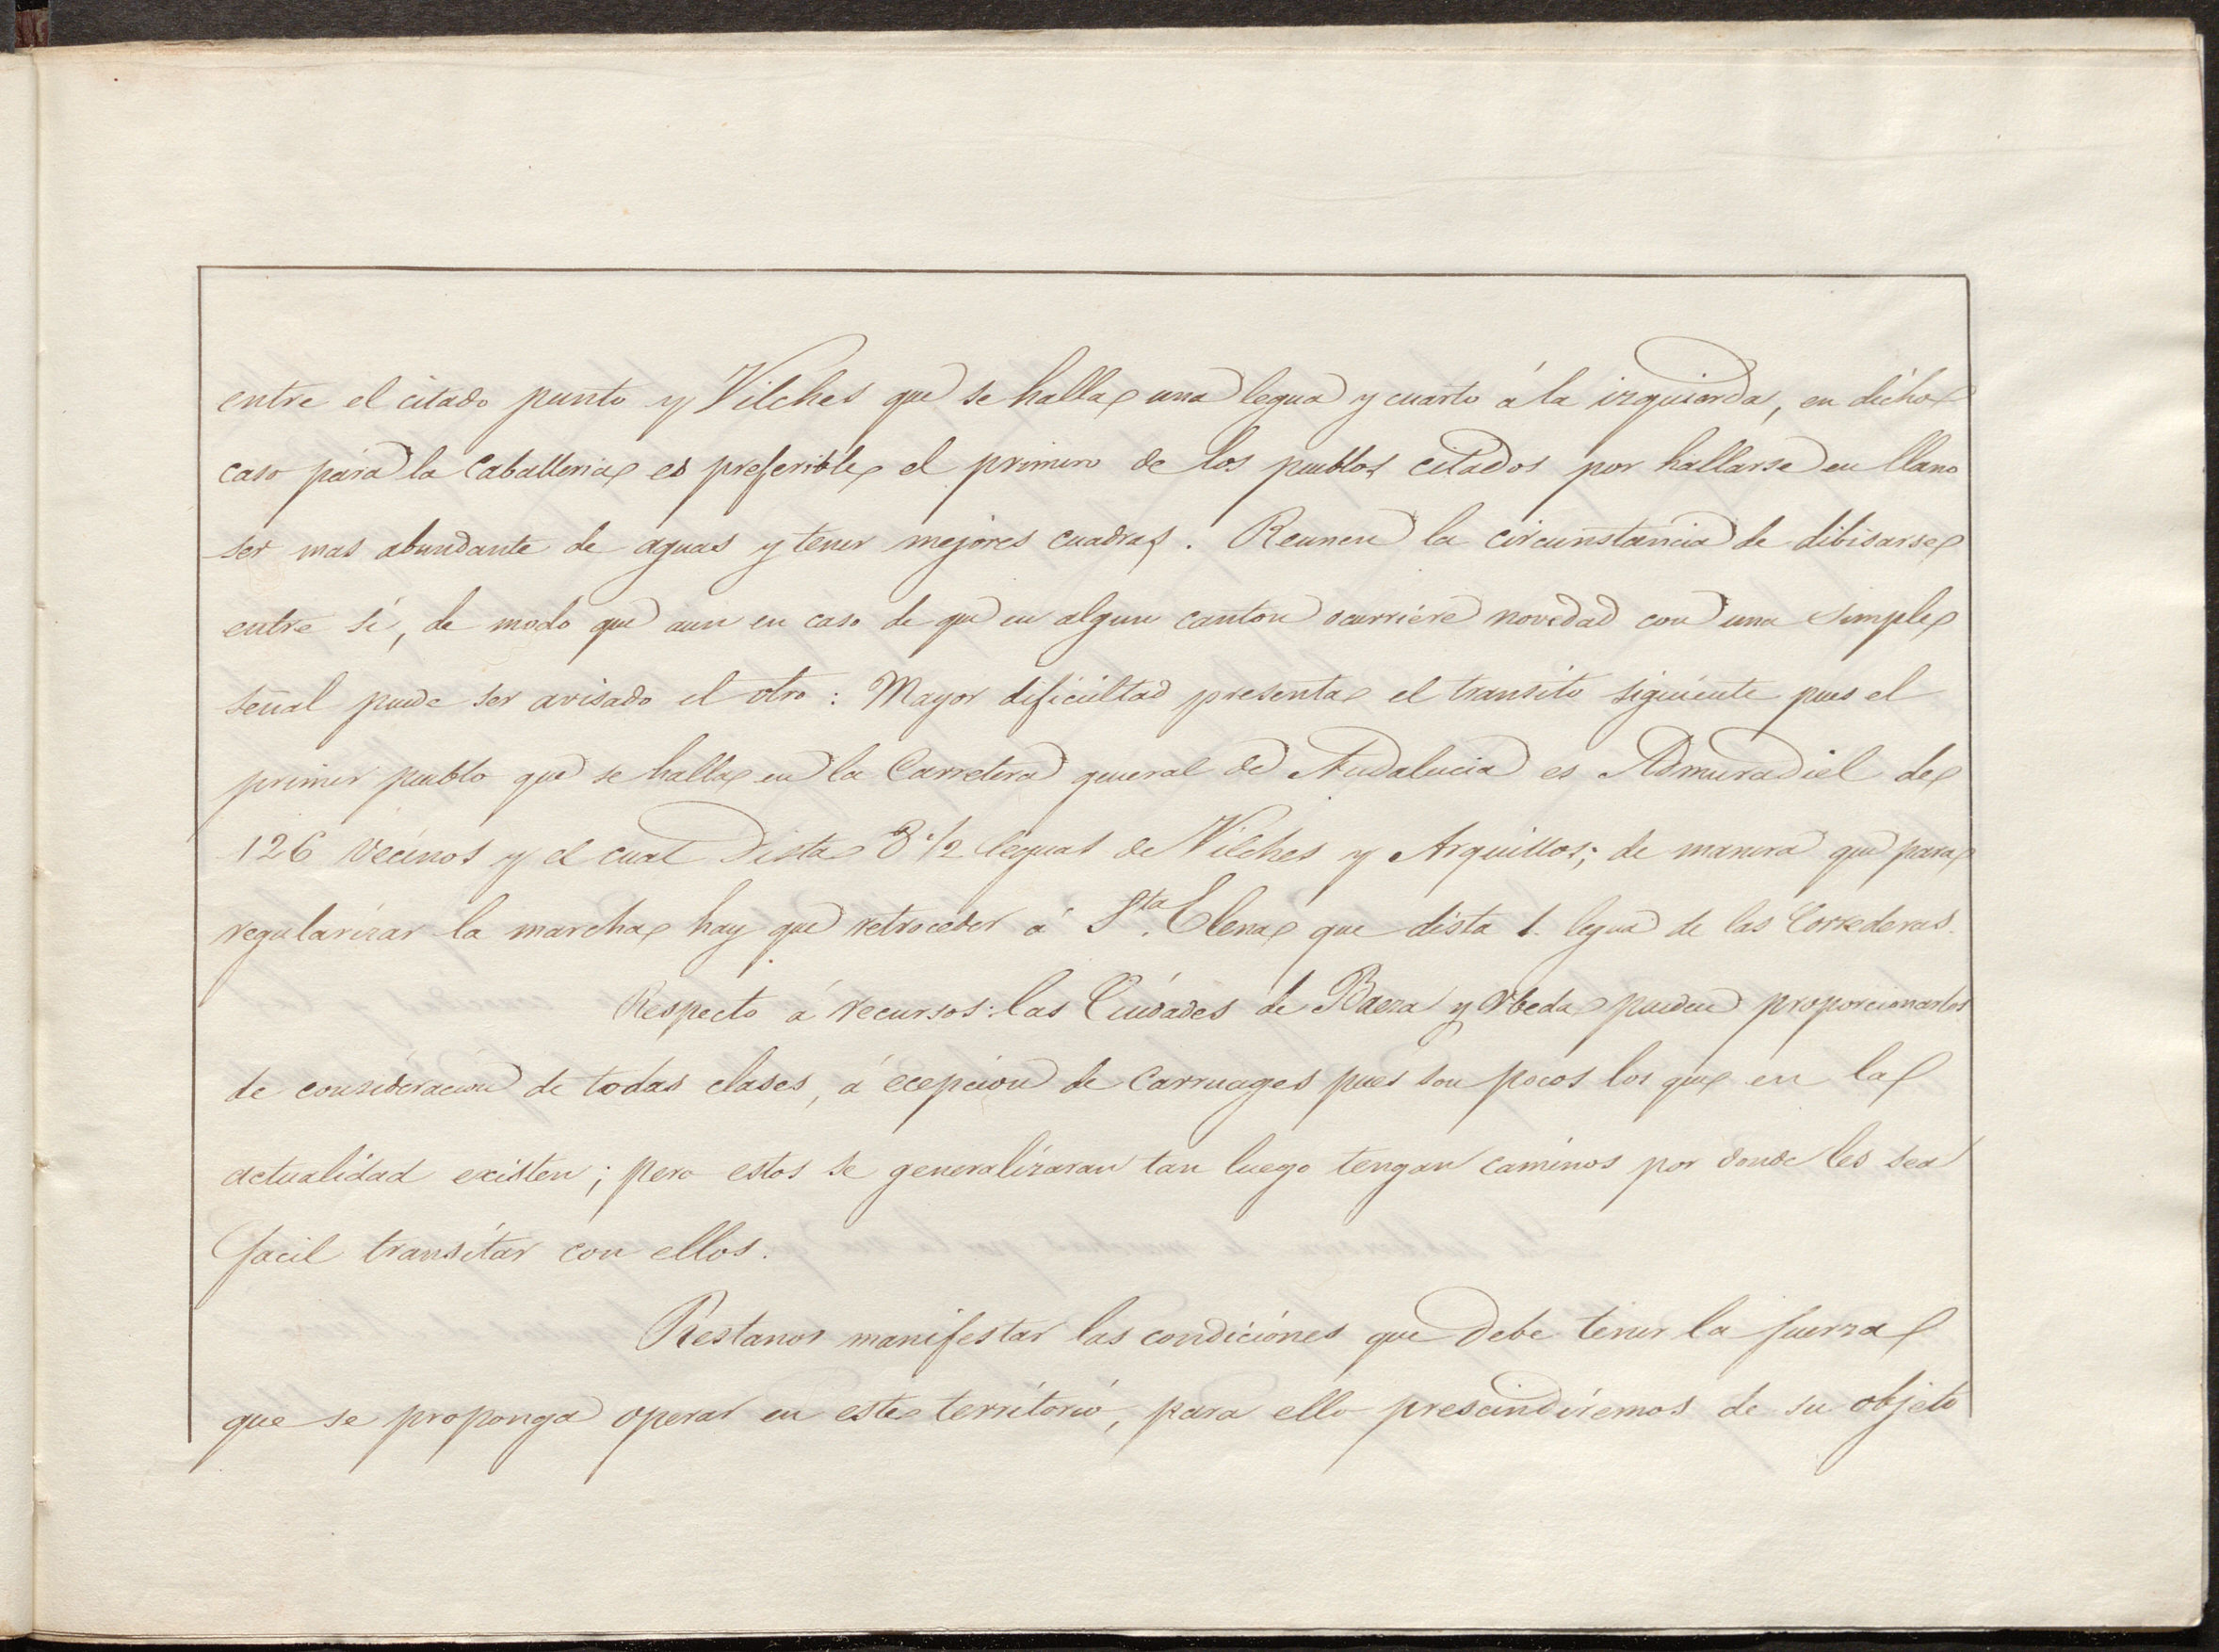 entre el citado punto y Vilches que se halla una legua y cuarto á la izquierda, en dicho
caso para la Caballeria es preferible el primero de los pueblos citados por hallarse en llano
ser mas abundante de aguas y tener mejores cuadras. Reunen la circunstancia de dibisarse
entre sí, de modo que aun en caso de que en algun canton ocurriere novedad con una simple
señal puede ser avisado el otro: Mayor dificultad presenta el transito siguiente pues el
primer pueblo que se halla en la Carretera general de Andalucia es Almuradiel de
126 vecinos y el cual dista 8 1/2 leguas de Vilches y Arquillos; de manera que para
regularizar la marcha hay que retroceder á Sta. Elena que dista 1 legua de las Correderas.
Respecto á recursos: las Ciudades de Baeza y Ubeda pueden proporcionarlos
de consideracion de todas clases, á ecepcion de Carruages pues son pocos los que en la
actualidad existen; pero estos se generalizaran tan luego tengan caminos por donde les sea
facil transitar con ellos.
Restanos manifestar las condiciones que debe tener la fuerza
que se proponga operar en este territorio, para ello prescindiremos de su objeto